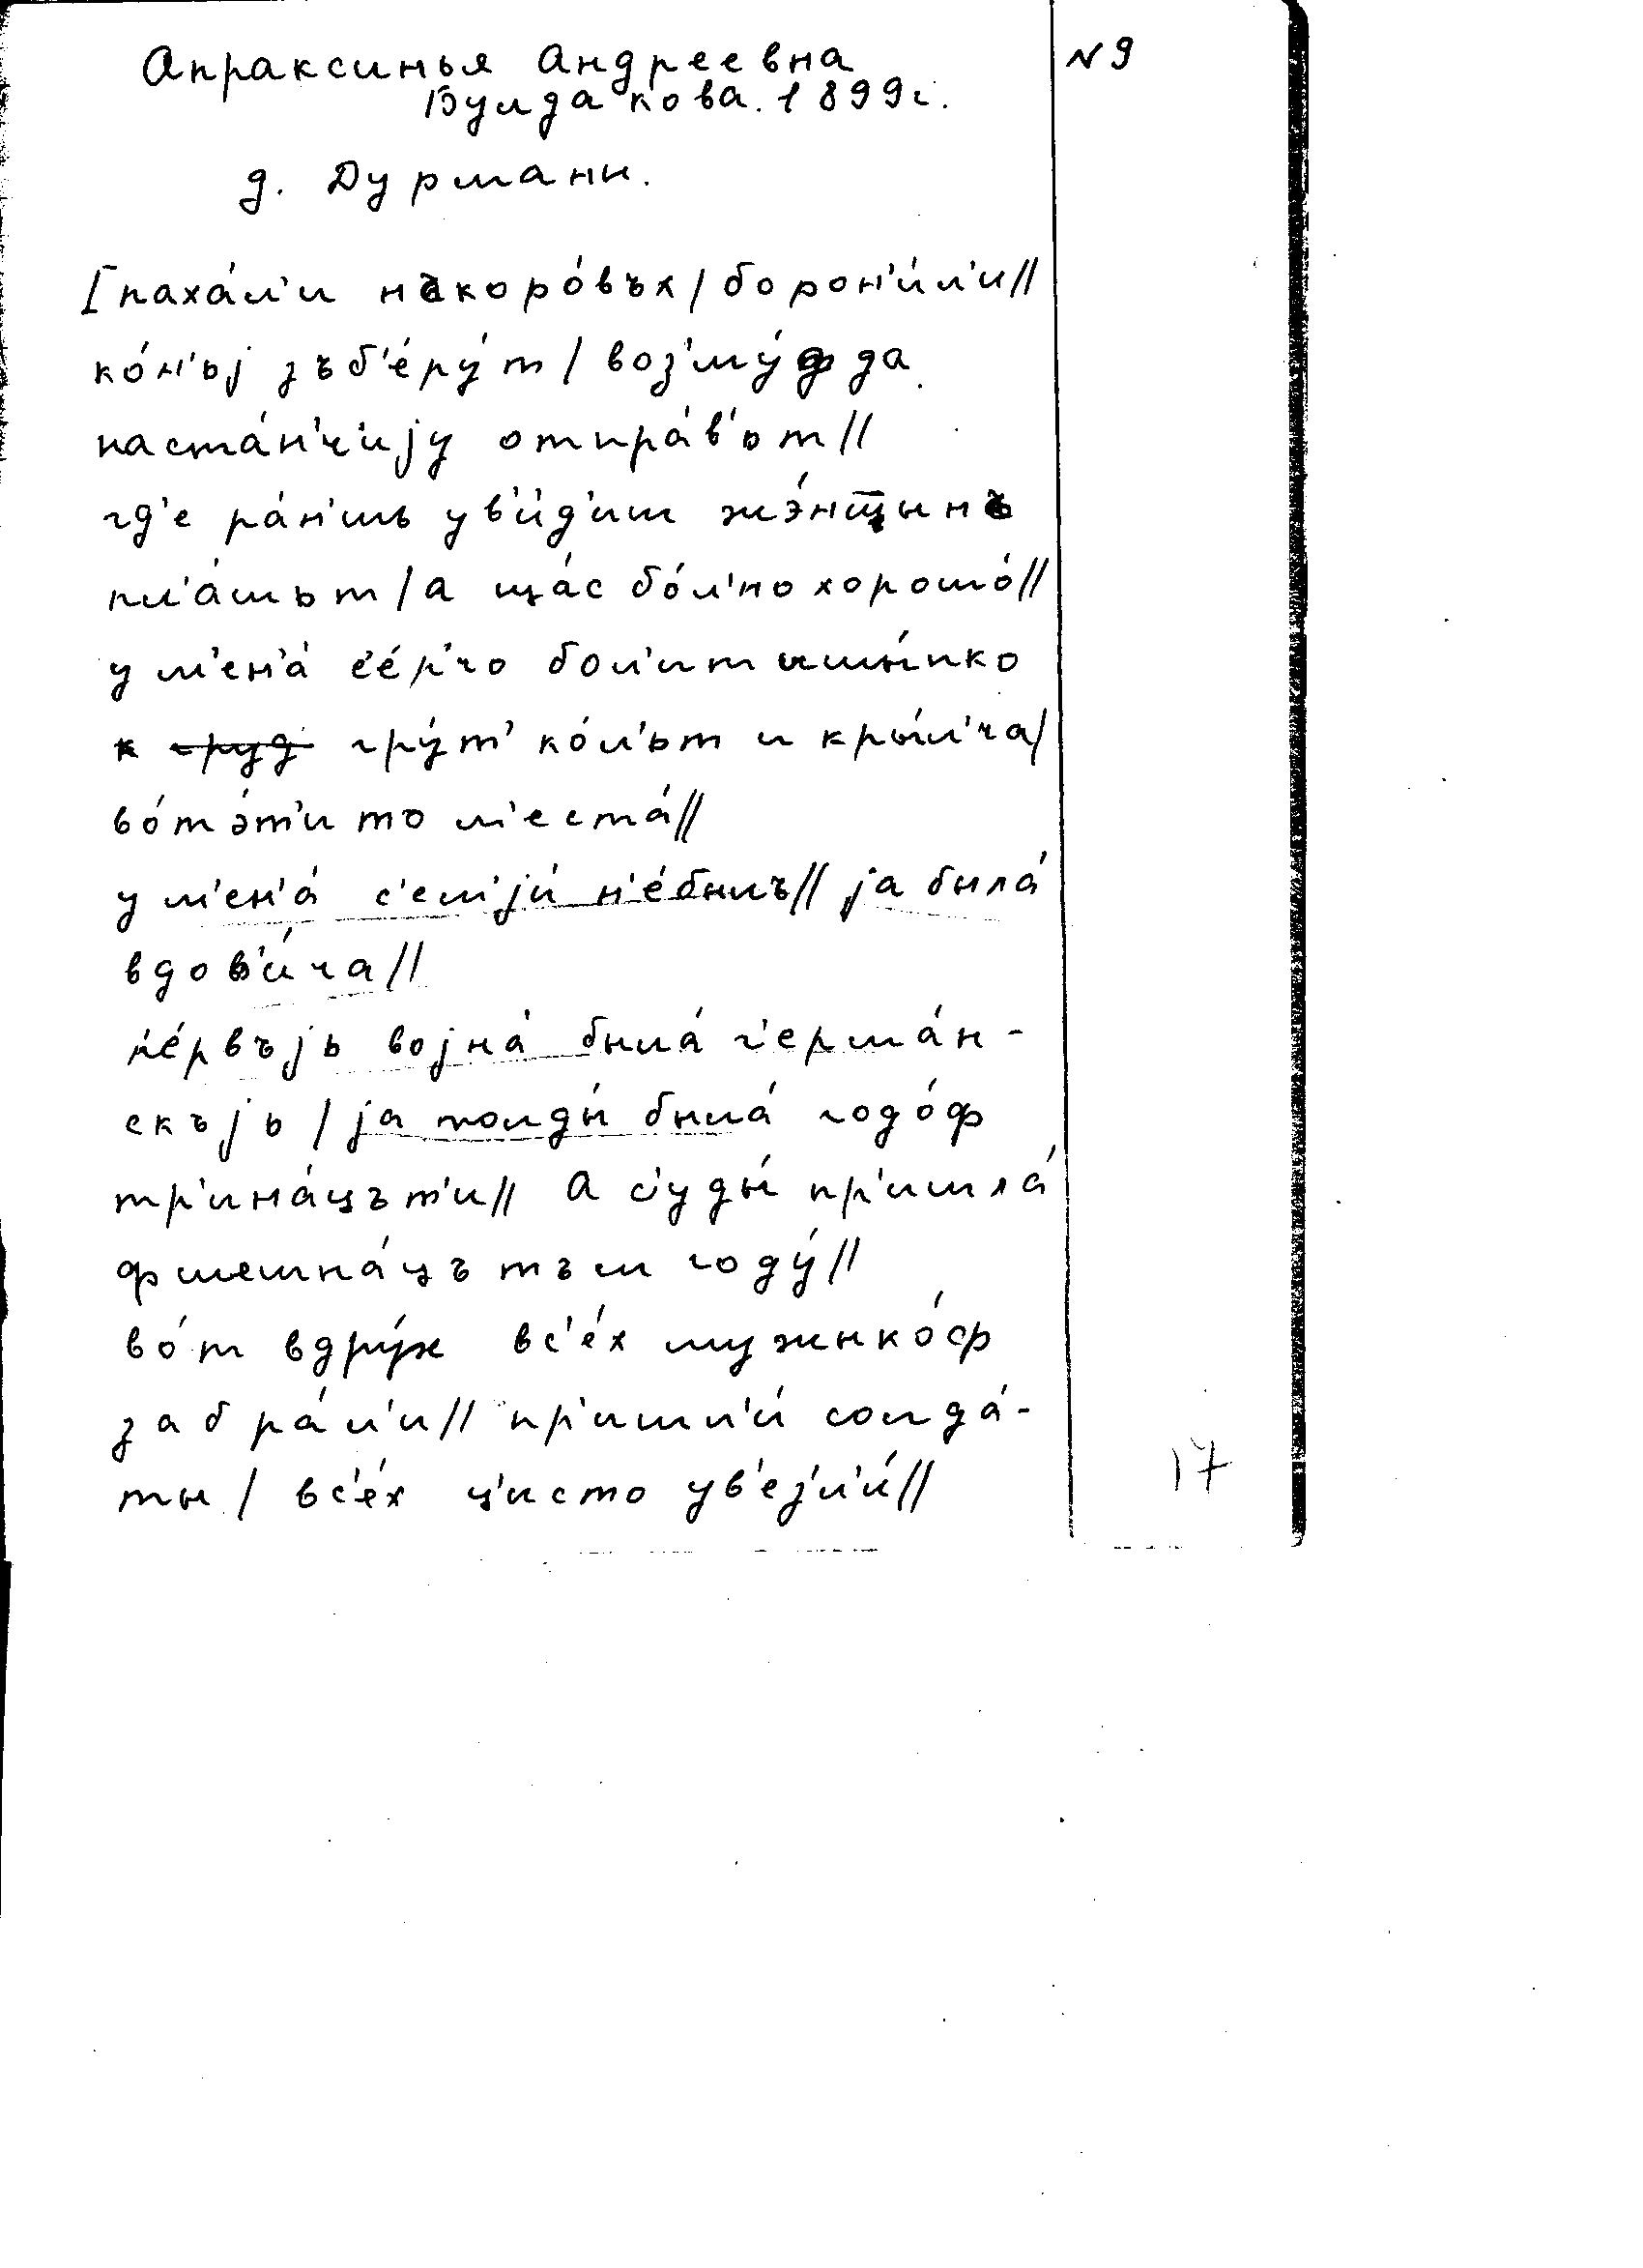 Апраксинья Андреевна
Булдакова. 1899г.
N 9
д. Дурмани.
[паха́л'и нъкоро́въх/ борон'и́л'и//
ко́н'ьј зъб'е́ру́т/ воз'му́ф да
наста́н'ц'ијy отпра́в'ьт//
гд'е ра́н'шь ув'и́д'иш жэ́нщын
пл'а́шьт/ а ща́с бо́л'но хорошо́//
у м'ен'а́ с'е́р'цо бол'ит шы́пко
к груд гру́т' ко́л'ьт и кры́л'ца/
во́т э́т'и то м'еста́//
у м'ен'а́ с'ем'jи́ н'е́былъ// ја была́
вдов'и́ца//
п'е́рвъјь војна́ была́ г'ерма́н-
скъјь/ ја толды́ была́ годо́ф
тр'ина́цът'и// А с'уды́ пр'ишла́
фшешна́цътъм году́//
во́т вдру́х вс'е́х мужыко́ф
забра́л'и// пр'ишл'и́ солда́-
ты/ вс'е́х ц'исто ув'езл'и́//
17